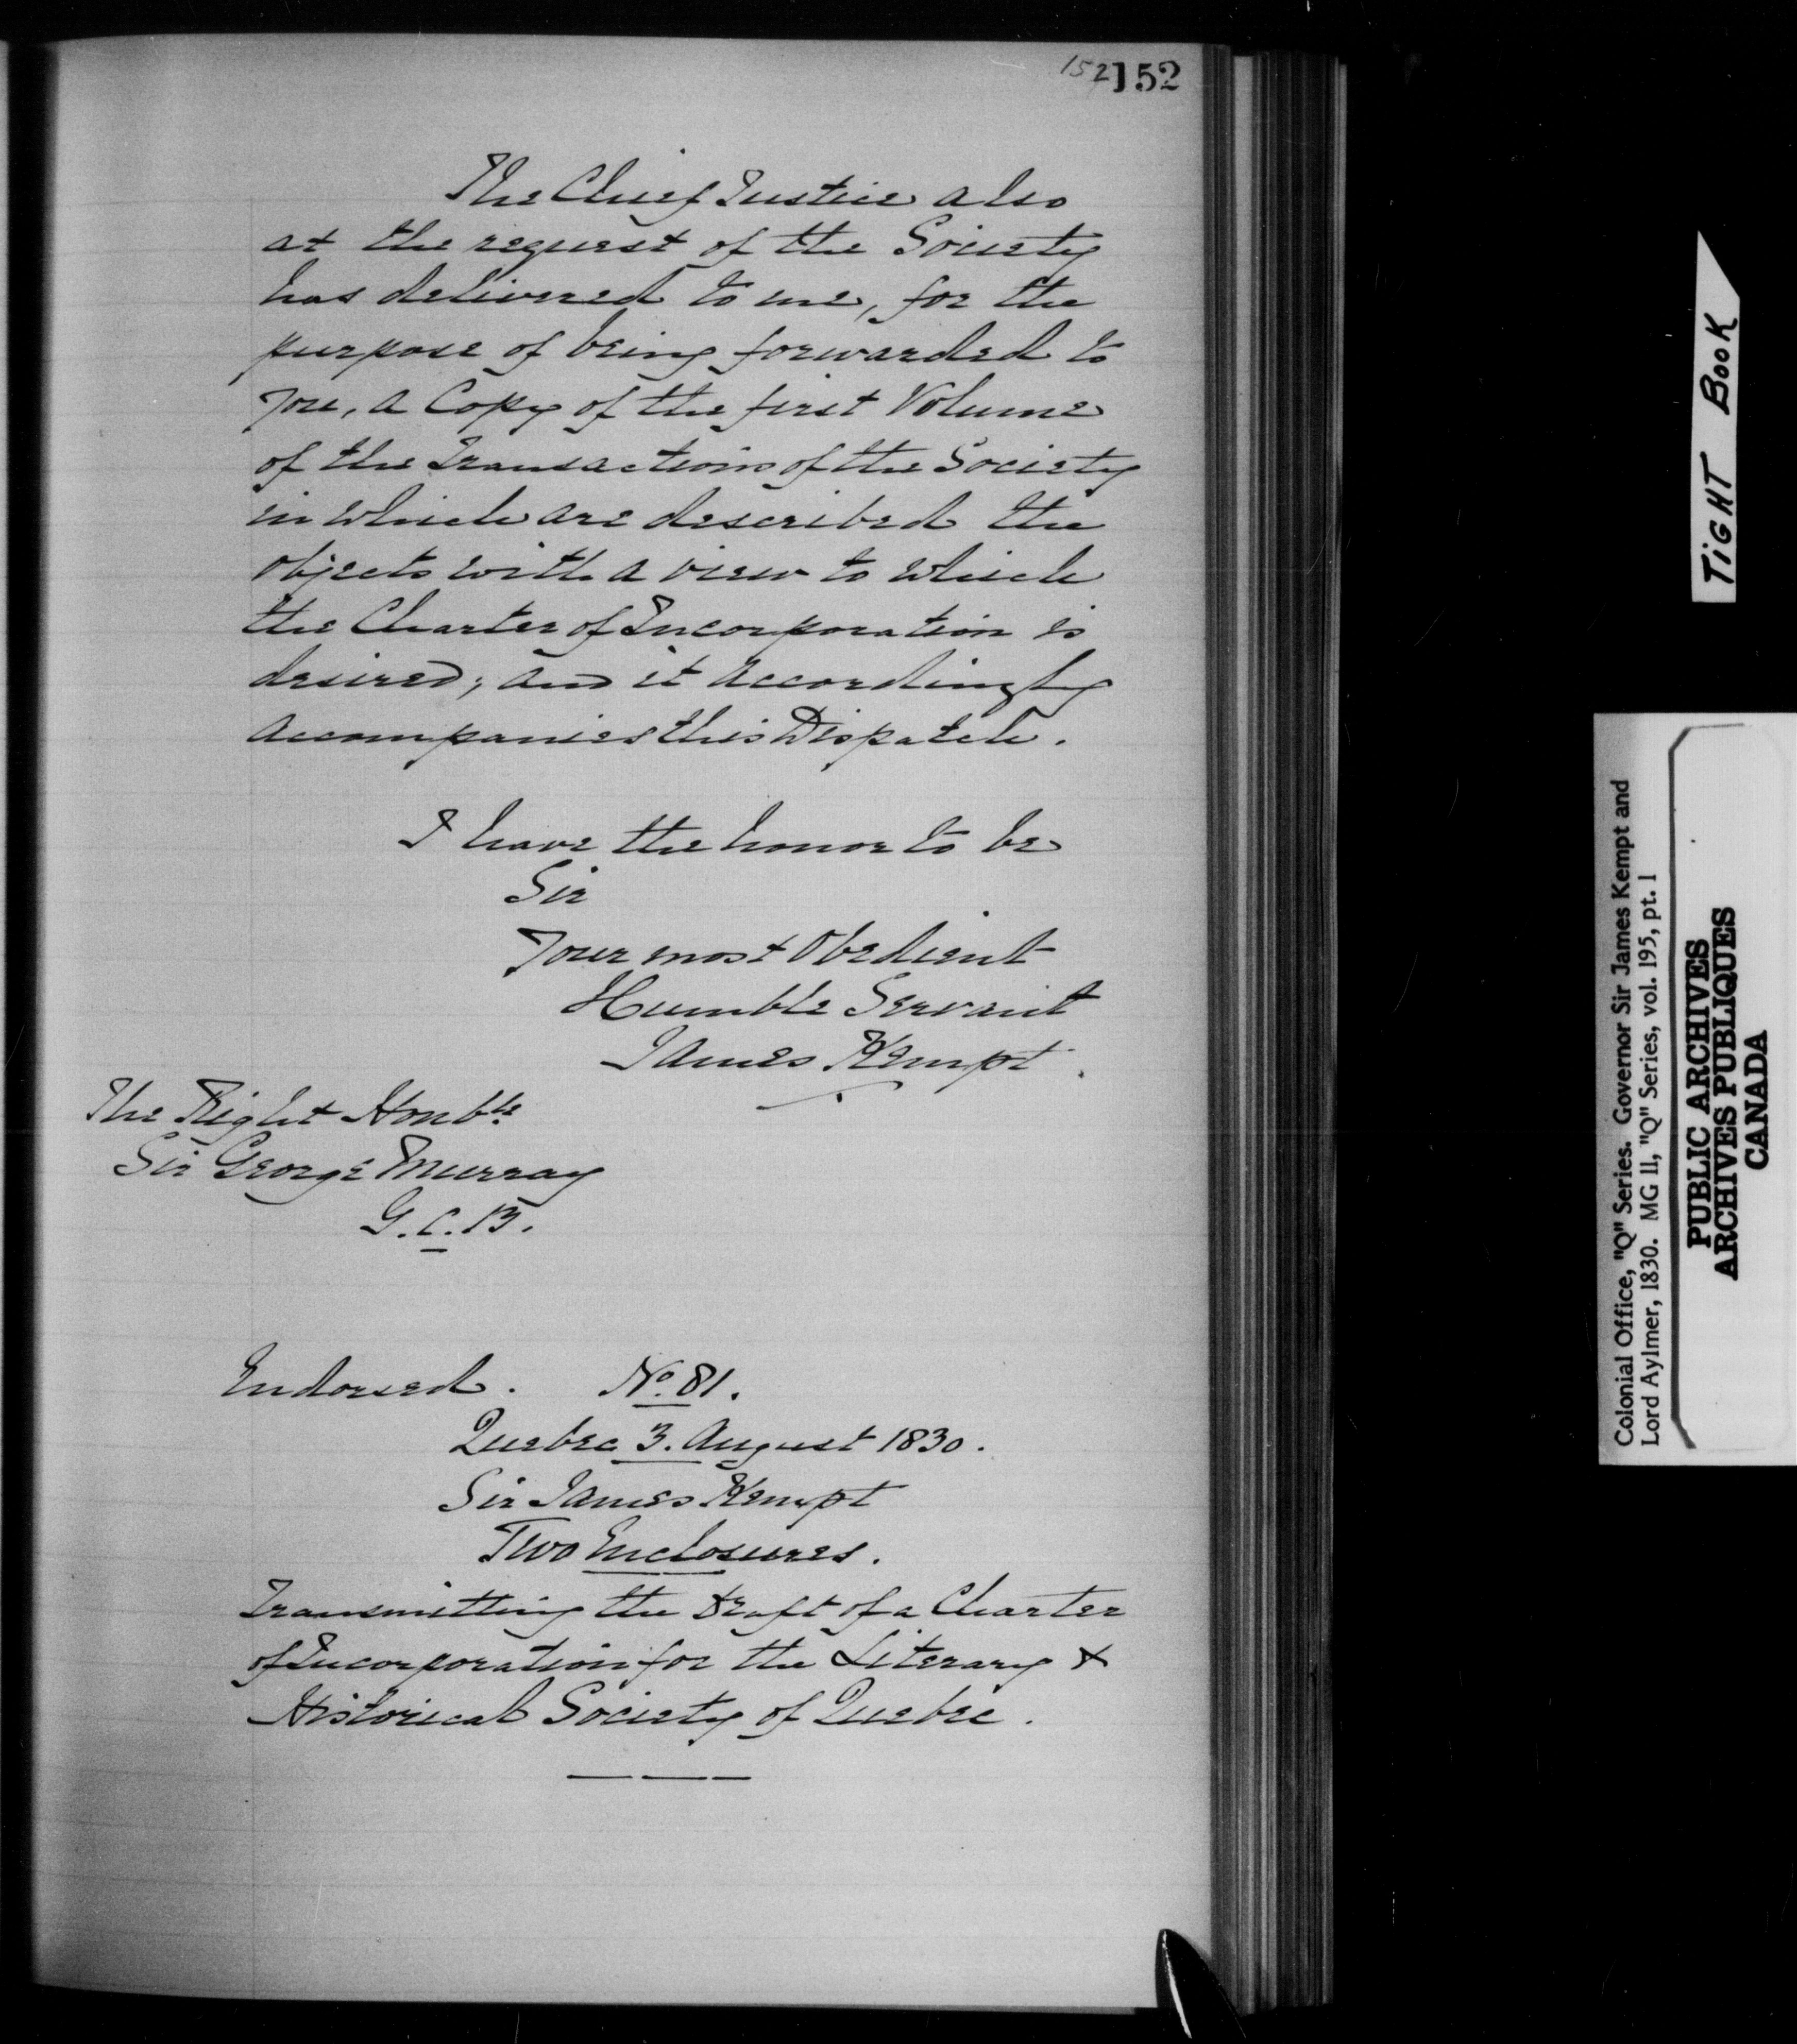 152 152
The Chief Justice also
at the request of the Society
has delivered to me, for the
purpose of being forwarded to
you, a Copy of the first Volume
of the Transactions of the Society
in which are described the
objects with a view to which
the Charter of Incorporation is
desired; and it accordingly
accompanies this Dispatch.
I have the honor to be
Sir
Your most Obedient
Humble Servant
James Kempt.
The Right Honble
Sir George Murray
G.C.B.
Endorsed. No. 81.
Quebec 3. August 1830.
Sir James Kempt
Two Enclosures.
Transmitting the Draft of a Charter
of Incorporation for the Literary &
Historical Society of Quebec.
TIGHT BOOK
Colonial Office, "Q" Series. Governor Sir James Kempt and
Lord Aylmer, 1830. MG 11, "Q" Series, vol. 195, pt. 1
PUBLIC ARCHIVES
ARCHIVES PUBLIQUES
CANADA